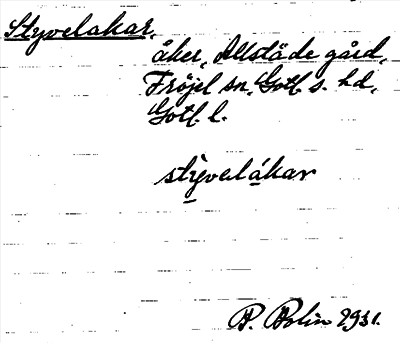 Styvelakar,
åker, Allstäde gård,
Fröjel sn, Gotl. s. hd,
Gotl. l.
stỳvelákar
P. Bolin 1931.